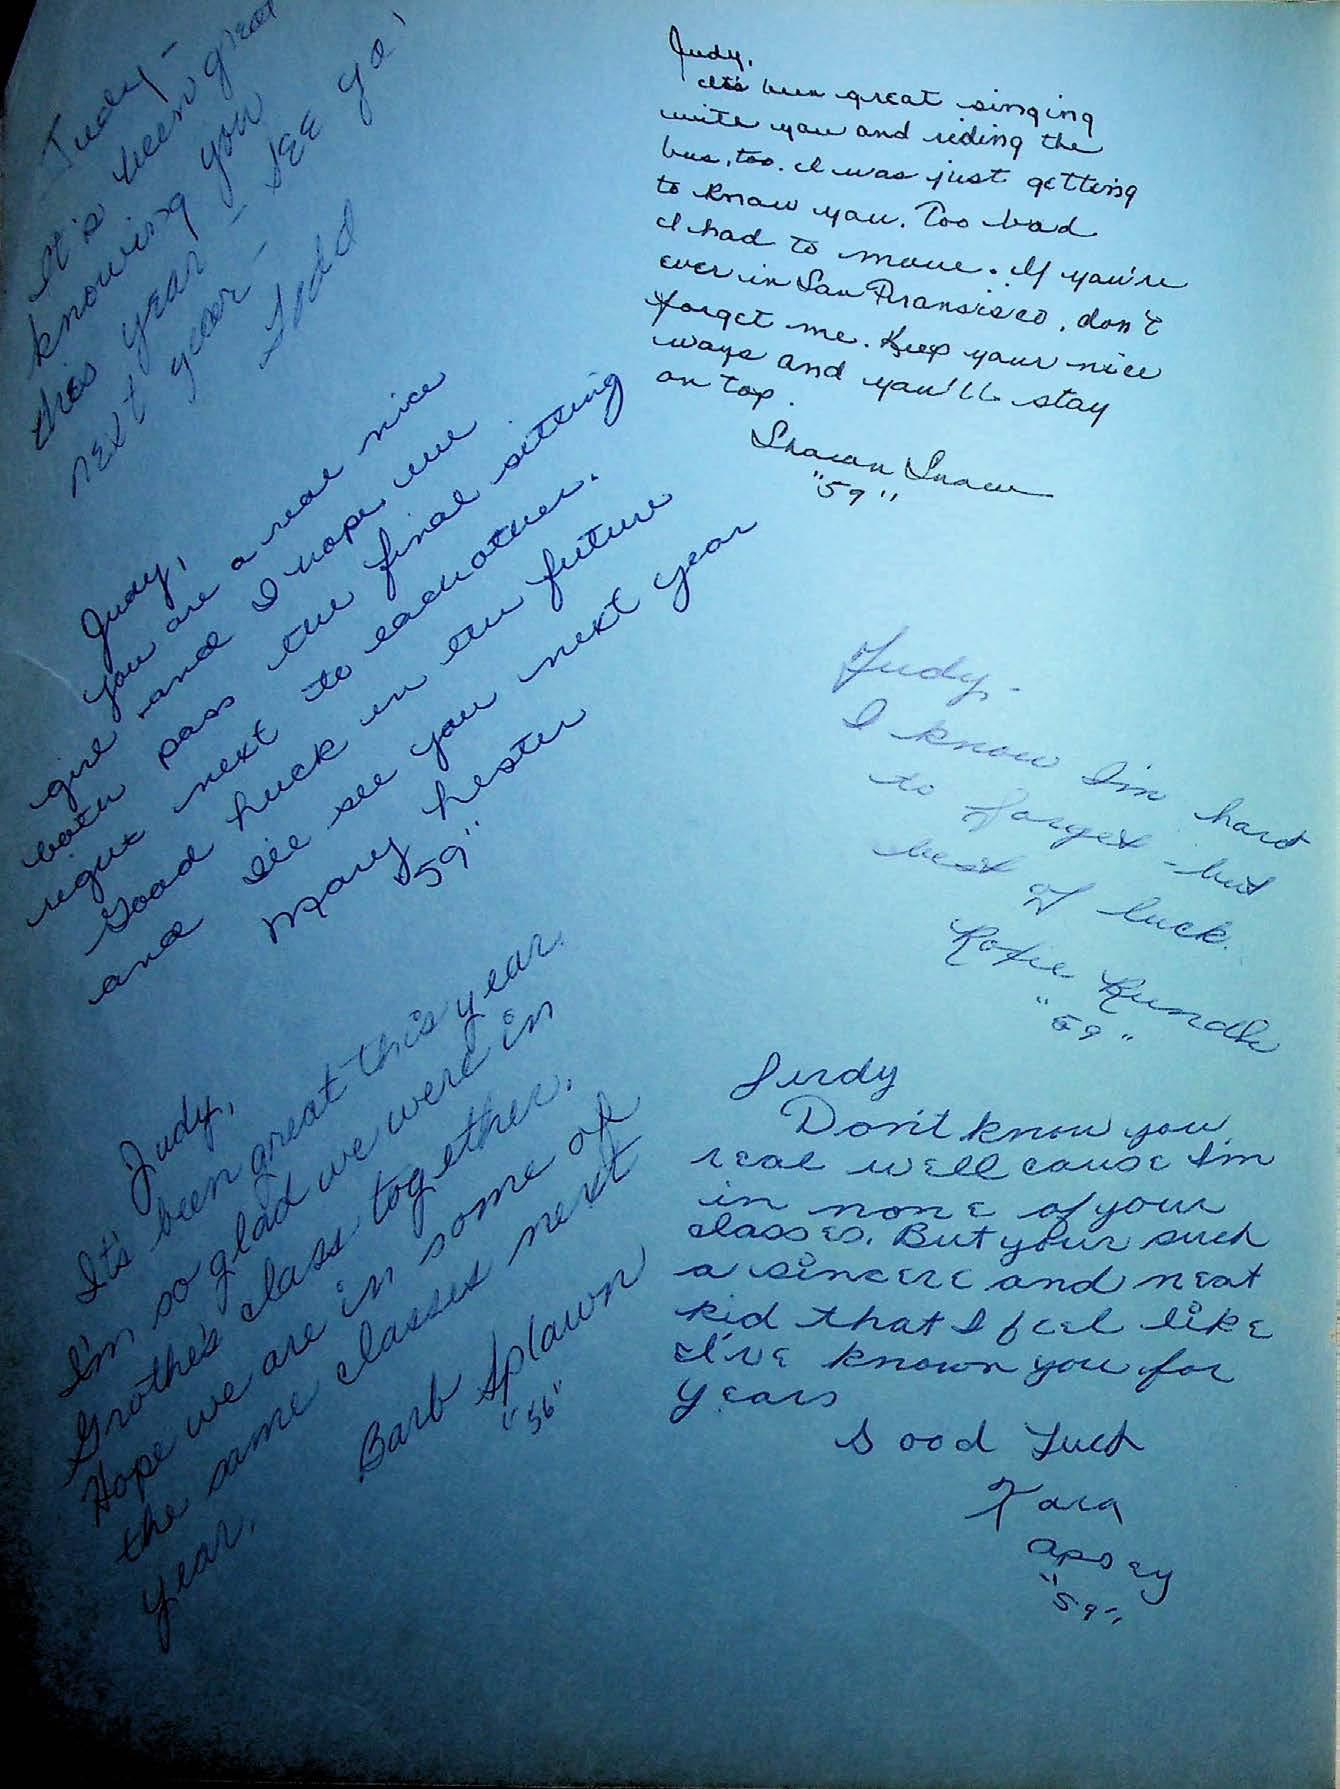 Judy -
It's been great
knowing you
this year - SEE ya!
next year -
Todd
Judy,
It's been great singing
with you and riding the
bus, too. I was just getting
to know you. Too bad
I had to move. If you're
ever in San Fransisco, don't
forget me. Keep your nice
ways and you'll stay
on top.
Sharon
"59"
Judy,
you are a real nice
girl and I hope we
both pass the final sitting
right next to eachother.
Good luck in the future
and I'll see you next year
Mary Lester
"59"
Judy,
I know I'm hard
to forget - but
best of luck.
"59"
Judy,
It's been great this year.
I'm so glad we were in
Grothe's class together.
Hope we are in some of
the same classes next
year.
Barb Splawn
"56"
Judy
Don't know you
real well cause I'm
in none of your
classes. But your such
a sincere and neat
kid that I feel like
I've known you for
years
Good Luck
Kara
Apsey
"59"